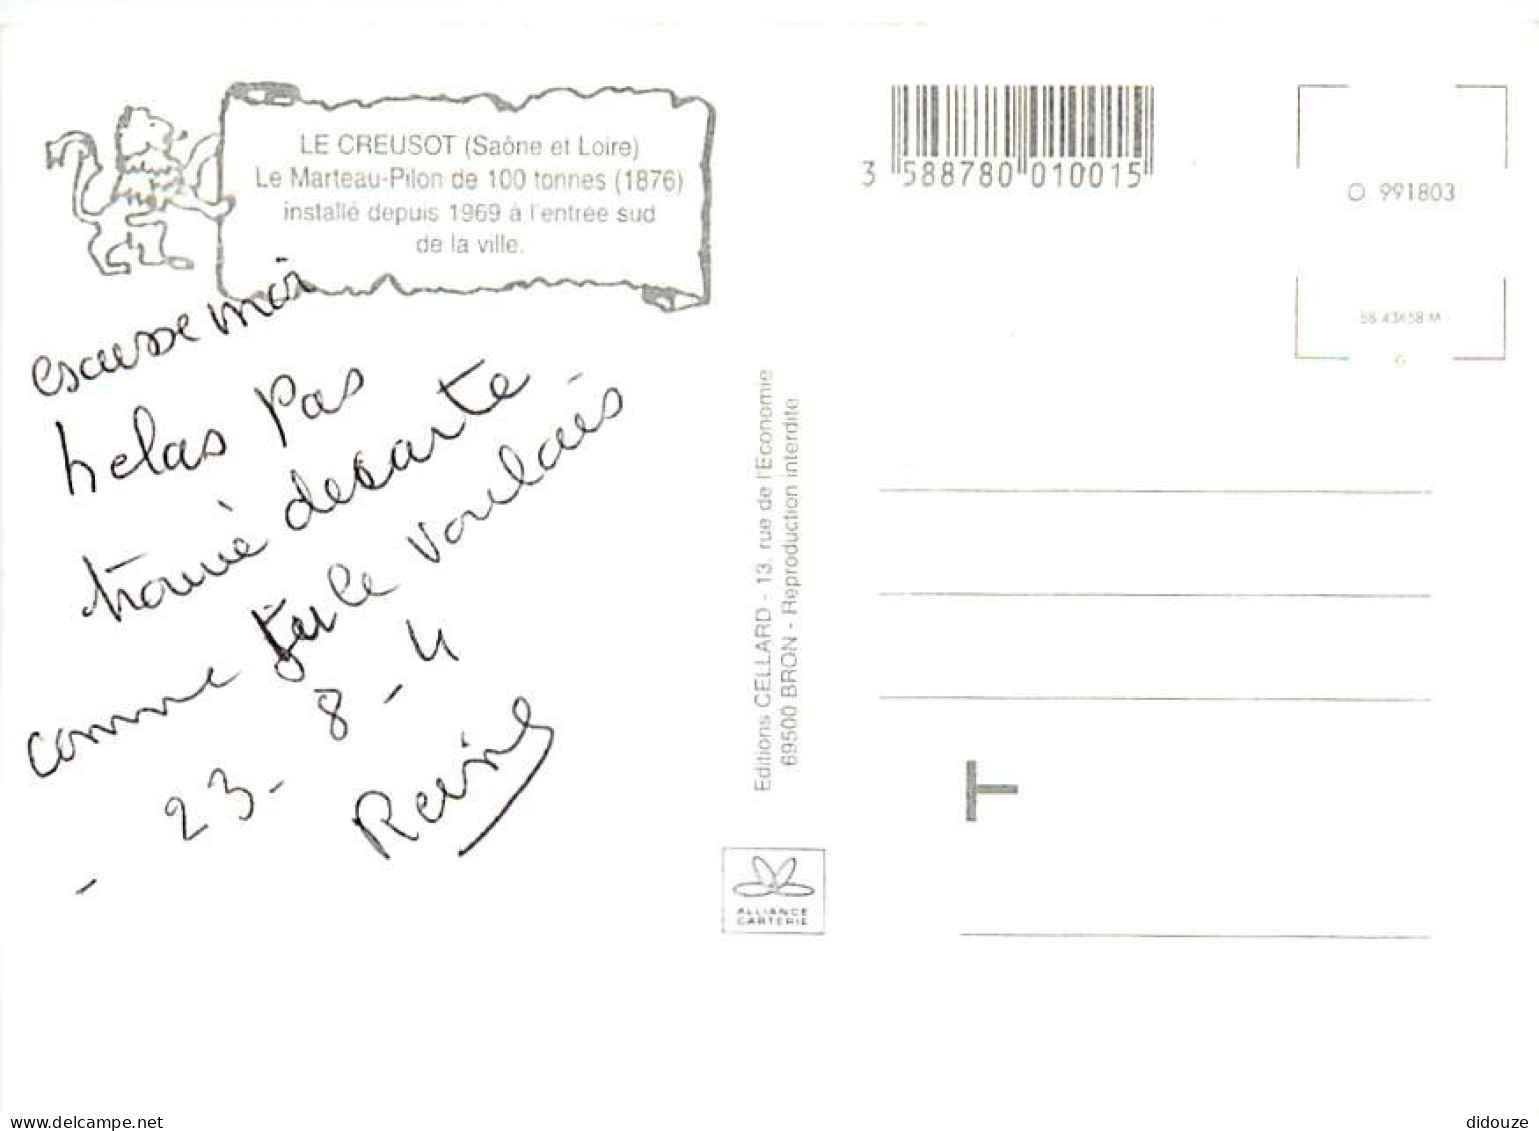 LE CREUSOT (Saône et Loire)
Le Marteau-Pilon de 100 tonnes (1876)
installé depuis 1969 à l'entrée sud
de la ville.
escusse moi
helas Pas
trouvé de carte
comme tu le voulais
- 23 - 8 - 4
Reine
Editions CELLARD - 13, rue de l'Economie
69500 BRON - Reproduction interdite
ALLIANCE
CARTERIE
3 588780 010015
O 991803
G
T
delcampe.net
didouze